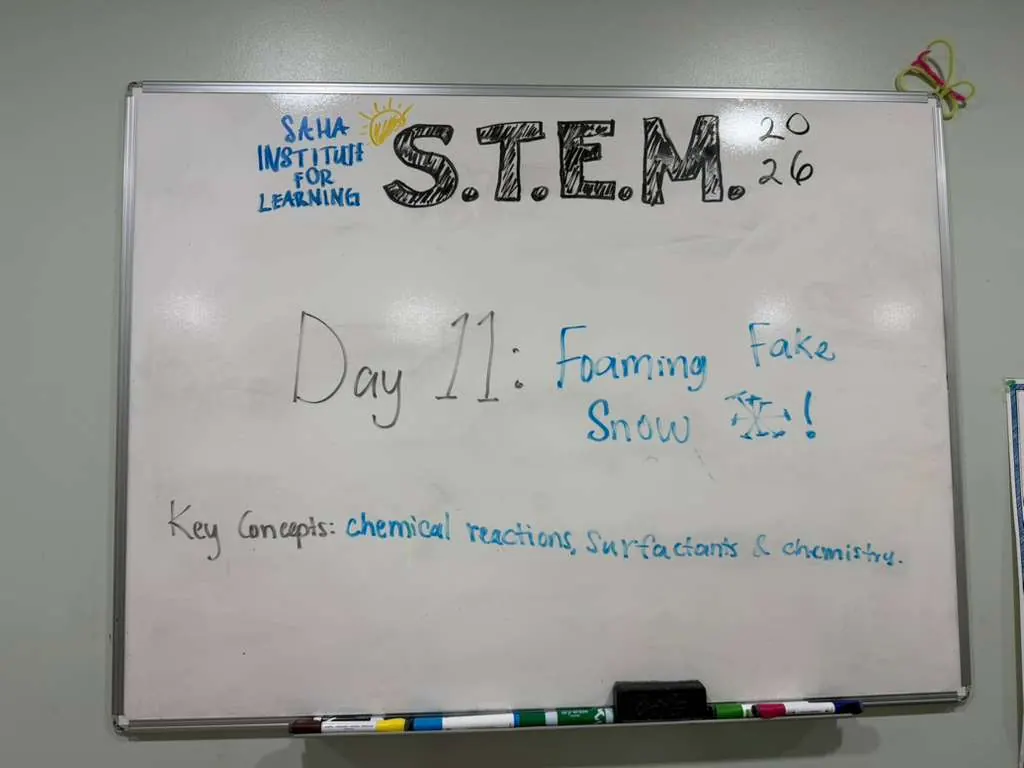 SAHA
INSTITUTE
FOR
LEARNING
S.T.E.M.
20
26
Day 11: Foaming Fake
Snow !
Key Concepts: chemical reactions, surfactants & chemistry.